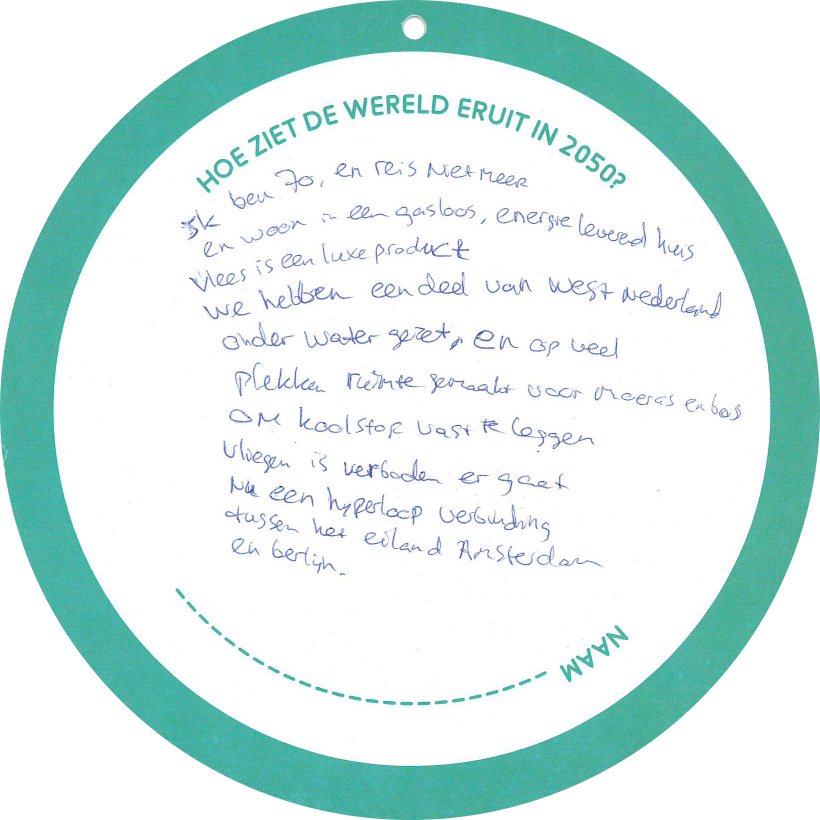 HOE ZIET DE WERELD ERUIT IN 2050?
Ik ben 70, en reis niet meer
en woon in een gasloos, energie leverend huis
Vlees is een luxe product
we hebben een deel van west Nederland
onder water gezet, en op veel
plekken ruimte gemaakt voor moeras en bos
om koolstof vast te leggen
vliegen is verboden er gaat
nu een hyperloop verbinding
tussen het eiland Amsterdam
en berlijn.
NAAM